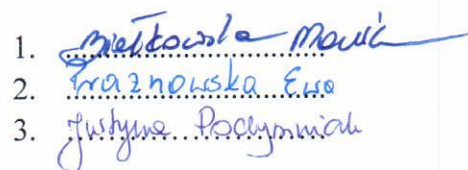 1. Bielkowska Maria
2. Praznowska Ewa
3. Justyna Podymniak